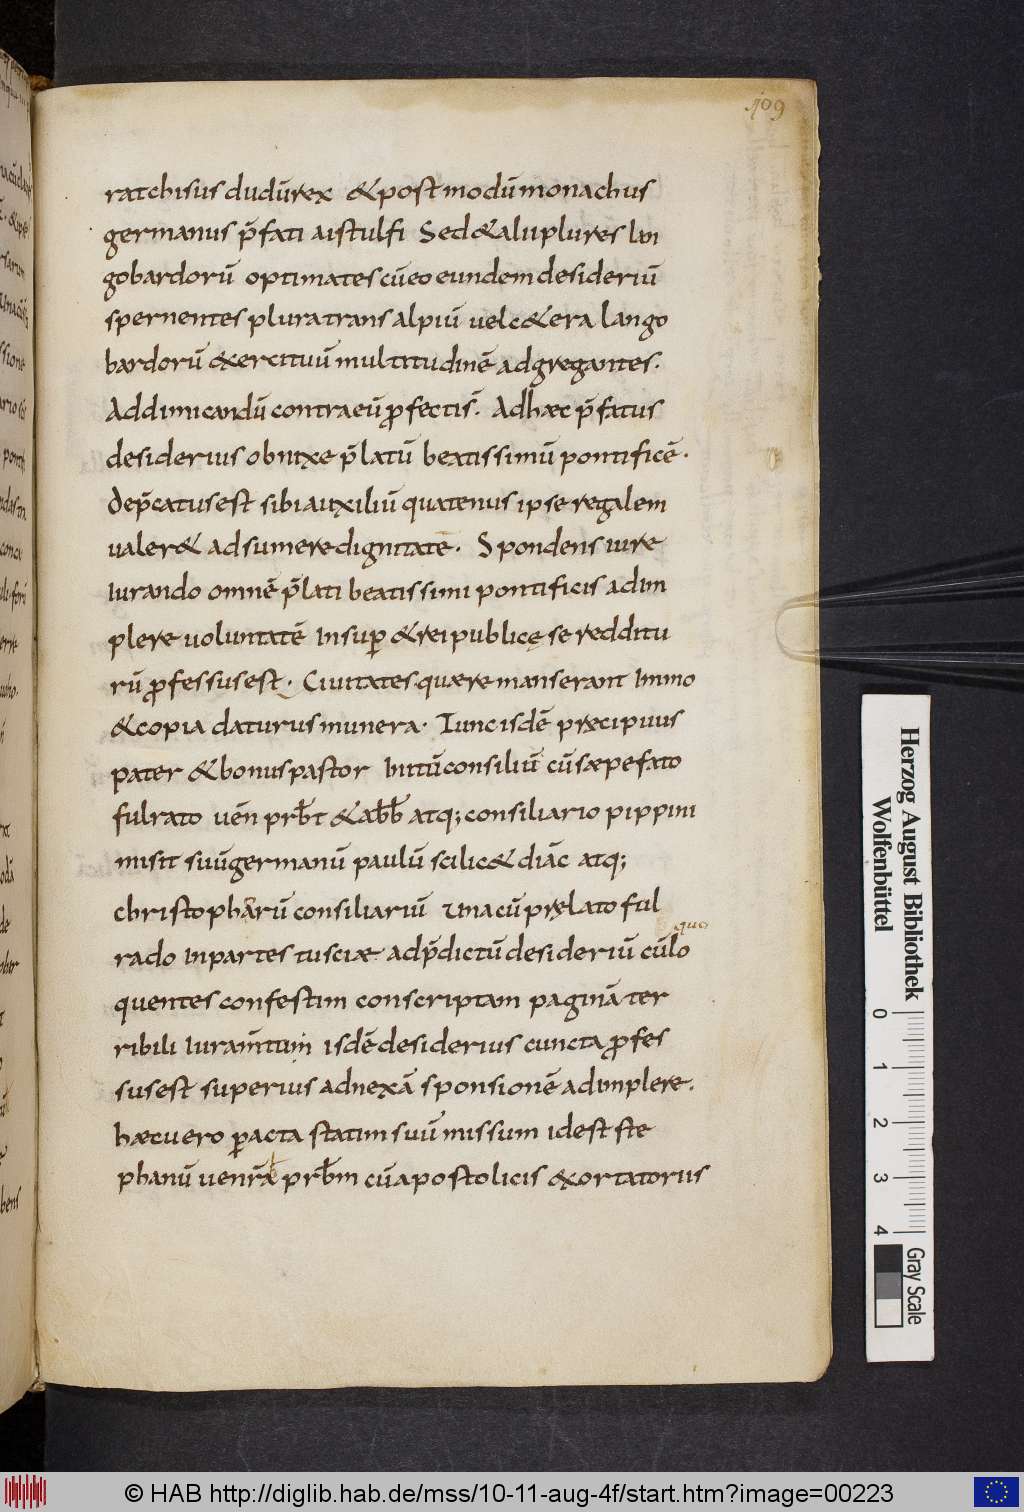 109
ratchisus dudū rex & postmodū monachus
germanus p̄fati aistulfi Sed & alii plures lan
gobardorū optimates cū eo eundem desideriū
spernentes plura transalpiū vel c&era lango
bardorū exercituū multitudinē adgregantes.
Ad dimicandū contra eū ꝓfectis̄. Ad hæc p̄fatus
desiderius obnixe p̄latū beatissimū pontificē.
dep̄catus est sibi auxiliū quatenus ipse regalem
valer& adsumere dignitatē. Spondens iure
iurando omnē p̄lati beatissimi pontificis adim
plere voluntatē Insuꝑ & reipublicę se redditu
rū ꝓfessus est. Civitates quæ remanserant Immo
& copia daturus munera. Tunc isdē præcipuus
pater & bonus pastor Initū consiliū cū sæpefato
fulrato vēn prb̄t & abb̄ atq; consiliario pippini
misit suū germanū paulū scilic& diāc atq;
christophārū consiliariū una cū prelato ful
rado In partes tusciæ ad p̄dictū desideriū cū lo
quo
quentes confestim conscriptam paginā ter
ribili Iuram̄tum isdē desiderius cuncta ꝓfes
sus est superius adnexā sponsionē adimplere.
hæc vero ꝑacta statim suū missum id est ste
phanū venr̄ prb̄m cū apostolicis exortatoriis
Herzog August Bibliothek
Wolfenbüttel
0 1 2 3 4
Gray Scale
© HAB http://diglib.hab.de/mss/10-11-aug-4f/start.htm?image=00223